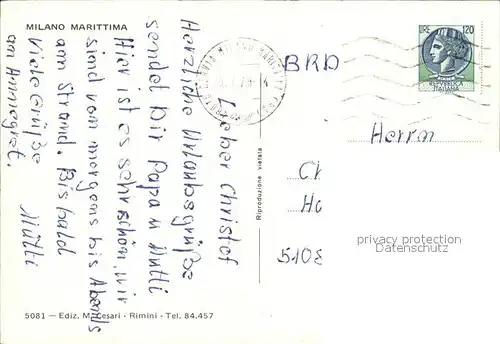 MILANO MARITTIMA
Lieber Christof
Herzliche Urlaubsgrüße
sendet Dir Papa u Mutti
Hier ist es sehr schön, wir
sind von morgens bis Abends
am Strand. Bis bald
Viele Grüße Mutti
an Annegret.
5081 — Ediz. M. Cesari - Rimini - Tel. 84.457
Riproduzione vietata
LIRE 120
REPUBBLICA
ITALIANA
BRD
Herrn
Ch
Ho
5108
privacy protection
Datenschutz